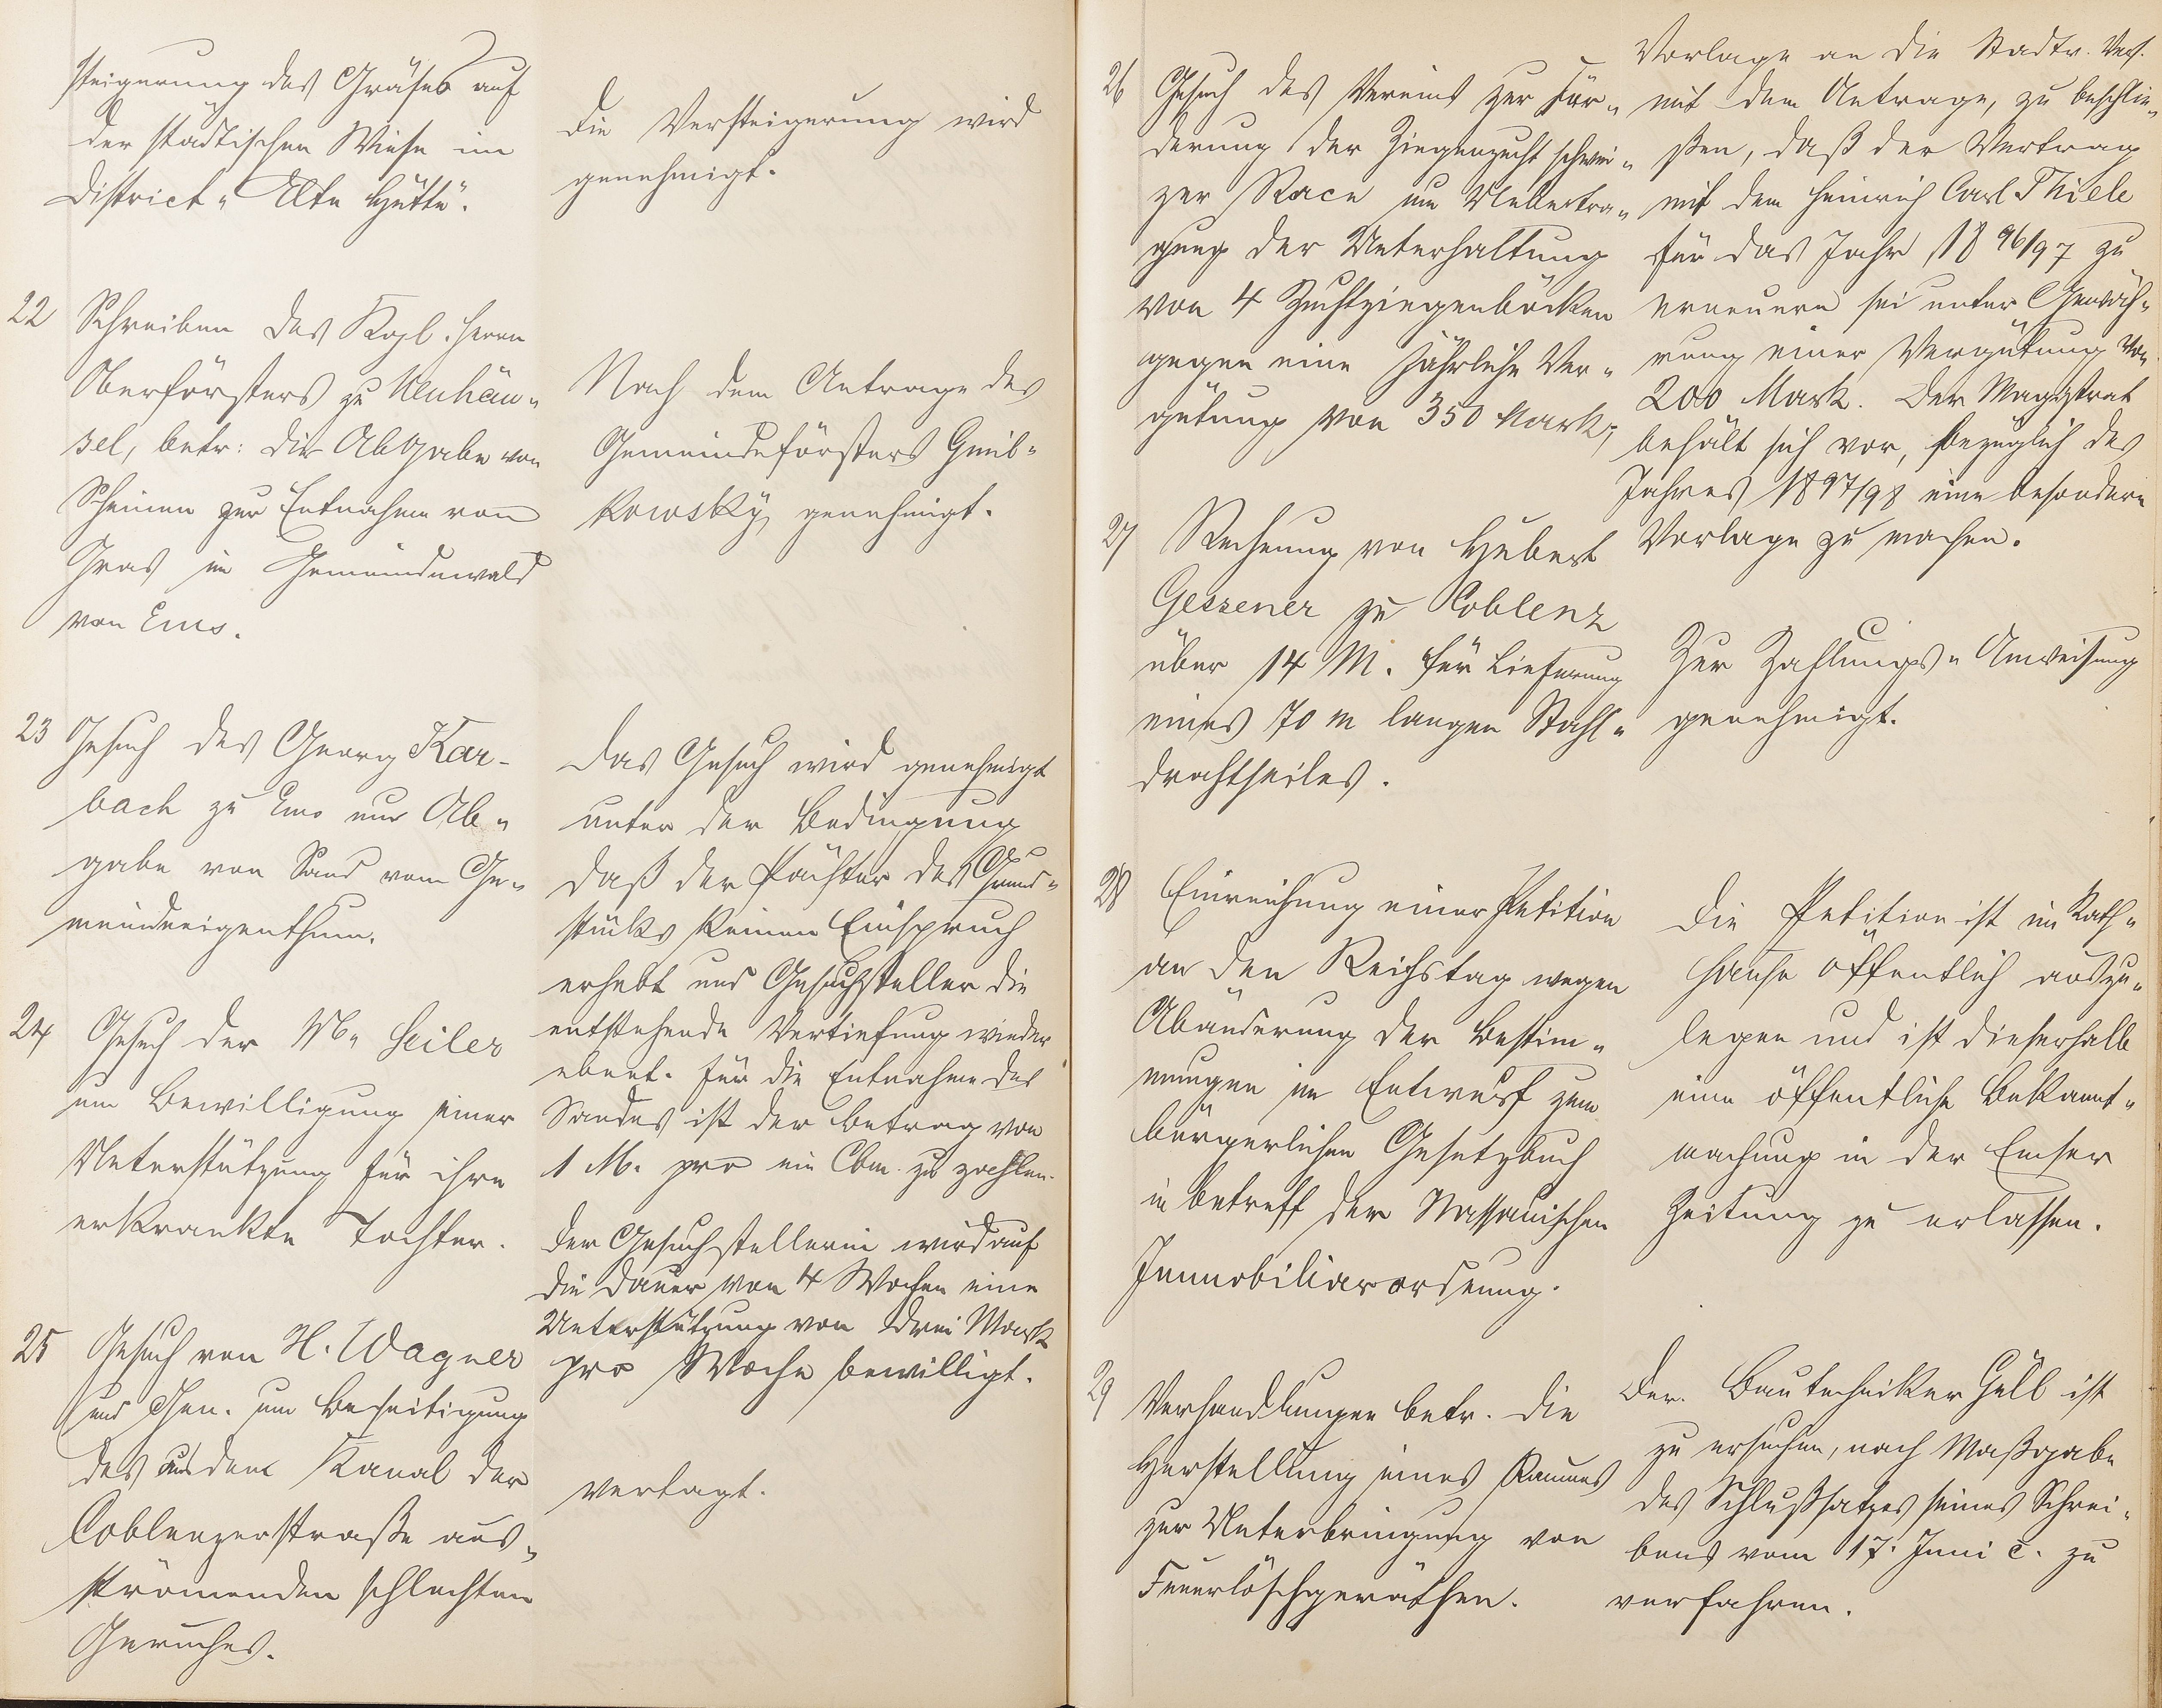 steigerung des Gräses auf
der städtischen Wiese im
District „Alte Hütte".
Die Versteigerung wird
genehmigt.
22 Schreiben des Kgl. Herrn
Oberförsters zu Neuhäu-
sel, betr: die Abgabe von
Scheinen zur Entnahme von
Gras im Gemeindewald
von Ems.
Nach dem Antrage des
Gemeindeförsters Gmil-
kowsky genehmigt.
23 Gesuch des Georg Kar-
bach zu Ems um Ab-
gabe von Sand vom Ge-
meindeeigenthum.
Das Gesuch wird genehmigt
unter der Bedingung
daß der Pächter des Grund-
stücks keinen Einspruch
erhebt und Gesuchsteller die
entstehende Vertiefung wieder
ebnet. Für die Entnahme des
Sandes ist der Betrag von
1 M. pro ein Cbm. zu zahlen.
24 Gesuch der W. Seiler
um Bewilligung einer
Unterstützung für ihre
erkrankte Tochter.
Der Gesuchstellerin wird auf
die Dauer von 4 Wochen eine
Unterstützung von drei Mark
pro Woche bewilligt.
25 Gesuch von H. Wagner
und Gen. um Beseitigung
des aus dem Kanal der
Coblenzerstraße aus-
strömenden schlechten
Geruches.
vertagt.
26 Gesuch des Vereins zur För-
derung der Ziegenzucht schwei-
zer Race um Uebertra-
gung der Unterhaltung
von 4 Zuchtziegenböcken
gegen eine jährliche Ver-
gütung von 350 Mark,
Vorlage an die Stadtv. Vers.
mit dem Antrage, zu beschlie-
ßen, daß der Vertrag
mit dem Heinrich Carl Thiele
für das Jahr 1896/97 zu
erneuern sei unter Gewäh-
rung einer Vergütung von
200 Mark. Der Magistrat
behält sich vor, bezüglich des
Jahres 1897/98 eine besondere
Vorlage zu machen.
27 Rechnung von Hubert
Gessener zu Coblenz
über 14 M. für Lieferung
eines 70 m langen Stahl-
drahtseiles.
Zur Zahlungs-Anweisung
genehmigt.
28 Einreichung einer Petition
an den Reichstag wegen
Abänderung der Bestim-
mungen im Entwurf zum
bürgerlichen Gesetzbuch
in betreff der Nassauischen
Immobiliarordnung.
Die Petition ist im Rath-
hause öffentlich auszu-
legen und ist dieserhalb
eine öffentliche Bekannt-
machung in der Emser
Zeitung zu erlassen.
29 Verhandlungen betr. die
Herstellung eines Raumes
zur Unterbringung von
Feuerlöschgeräthen.
Der Bautechniker Güll ist
zu ersuchen, nach Maßgabe
des Schlußsatzes seines Schrei-
bens vom 17. Juni c. zu
verfahren.